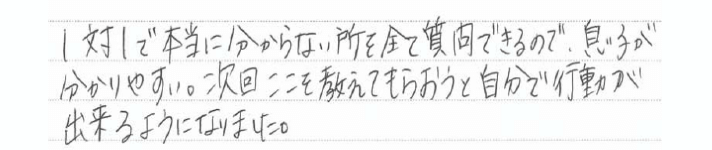 1対1で本当に分からない所を全て質問できるので、息子が
分かりやすい。次回ここを教えてもらおうと自分で行動が
出来るようになりました。